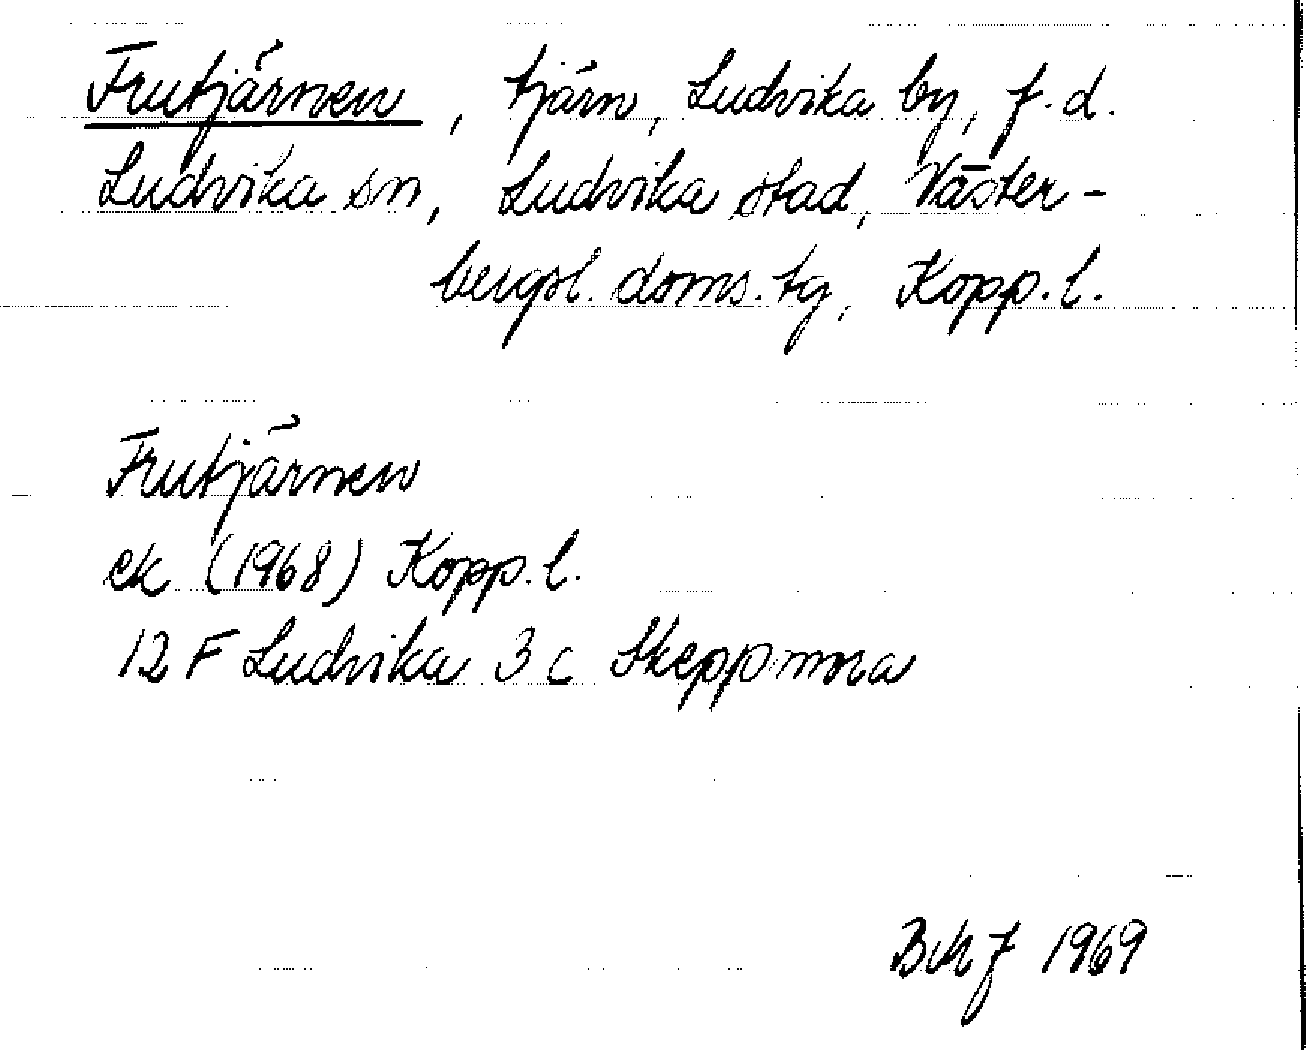 Frutjärnen, tjärn, Ludvika by, f.d.
Ludvika sn, Ludvika stad, Väster-
bergsl. doms. tg, Kopp. l.
Frutjärnen
ek (1968) Kopp. l.
12 F Ludvika 3 c Skeppmora
1969